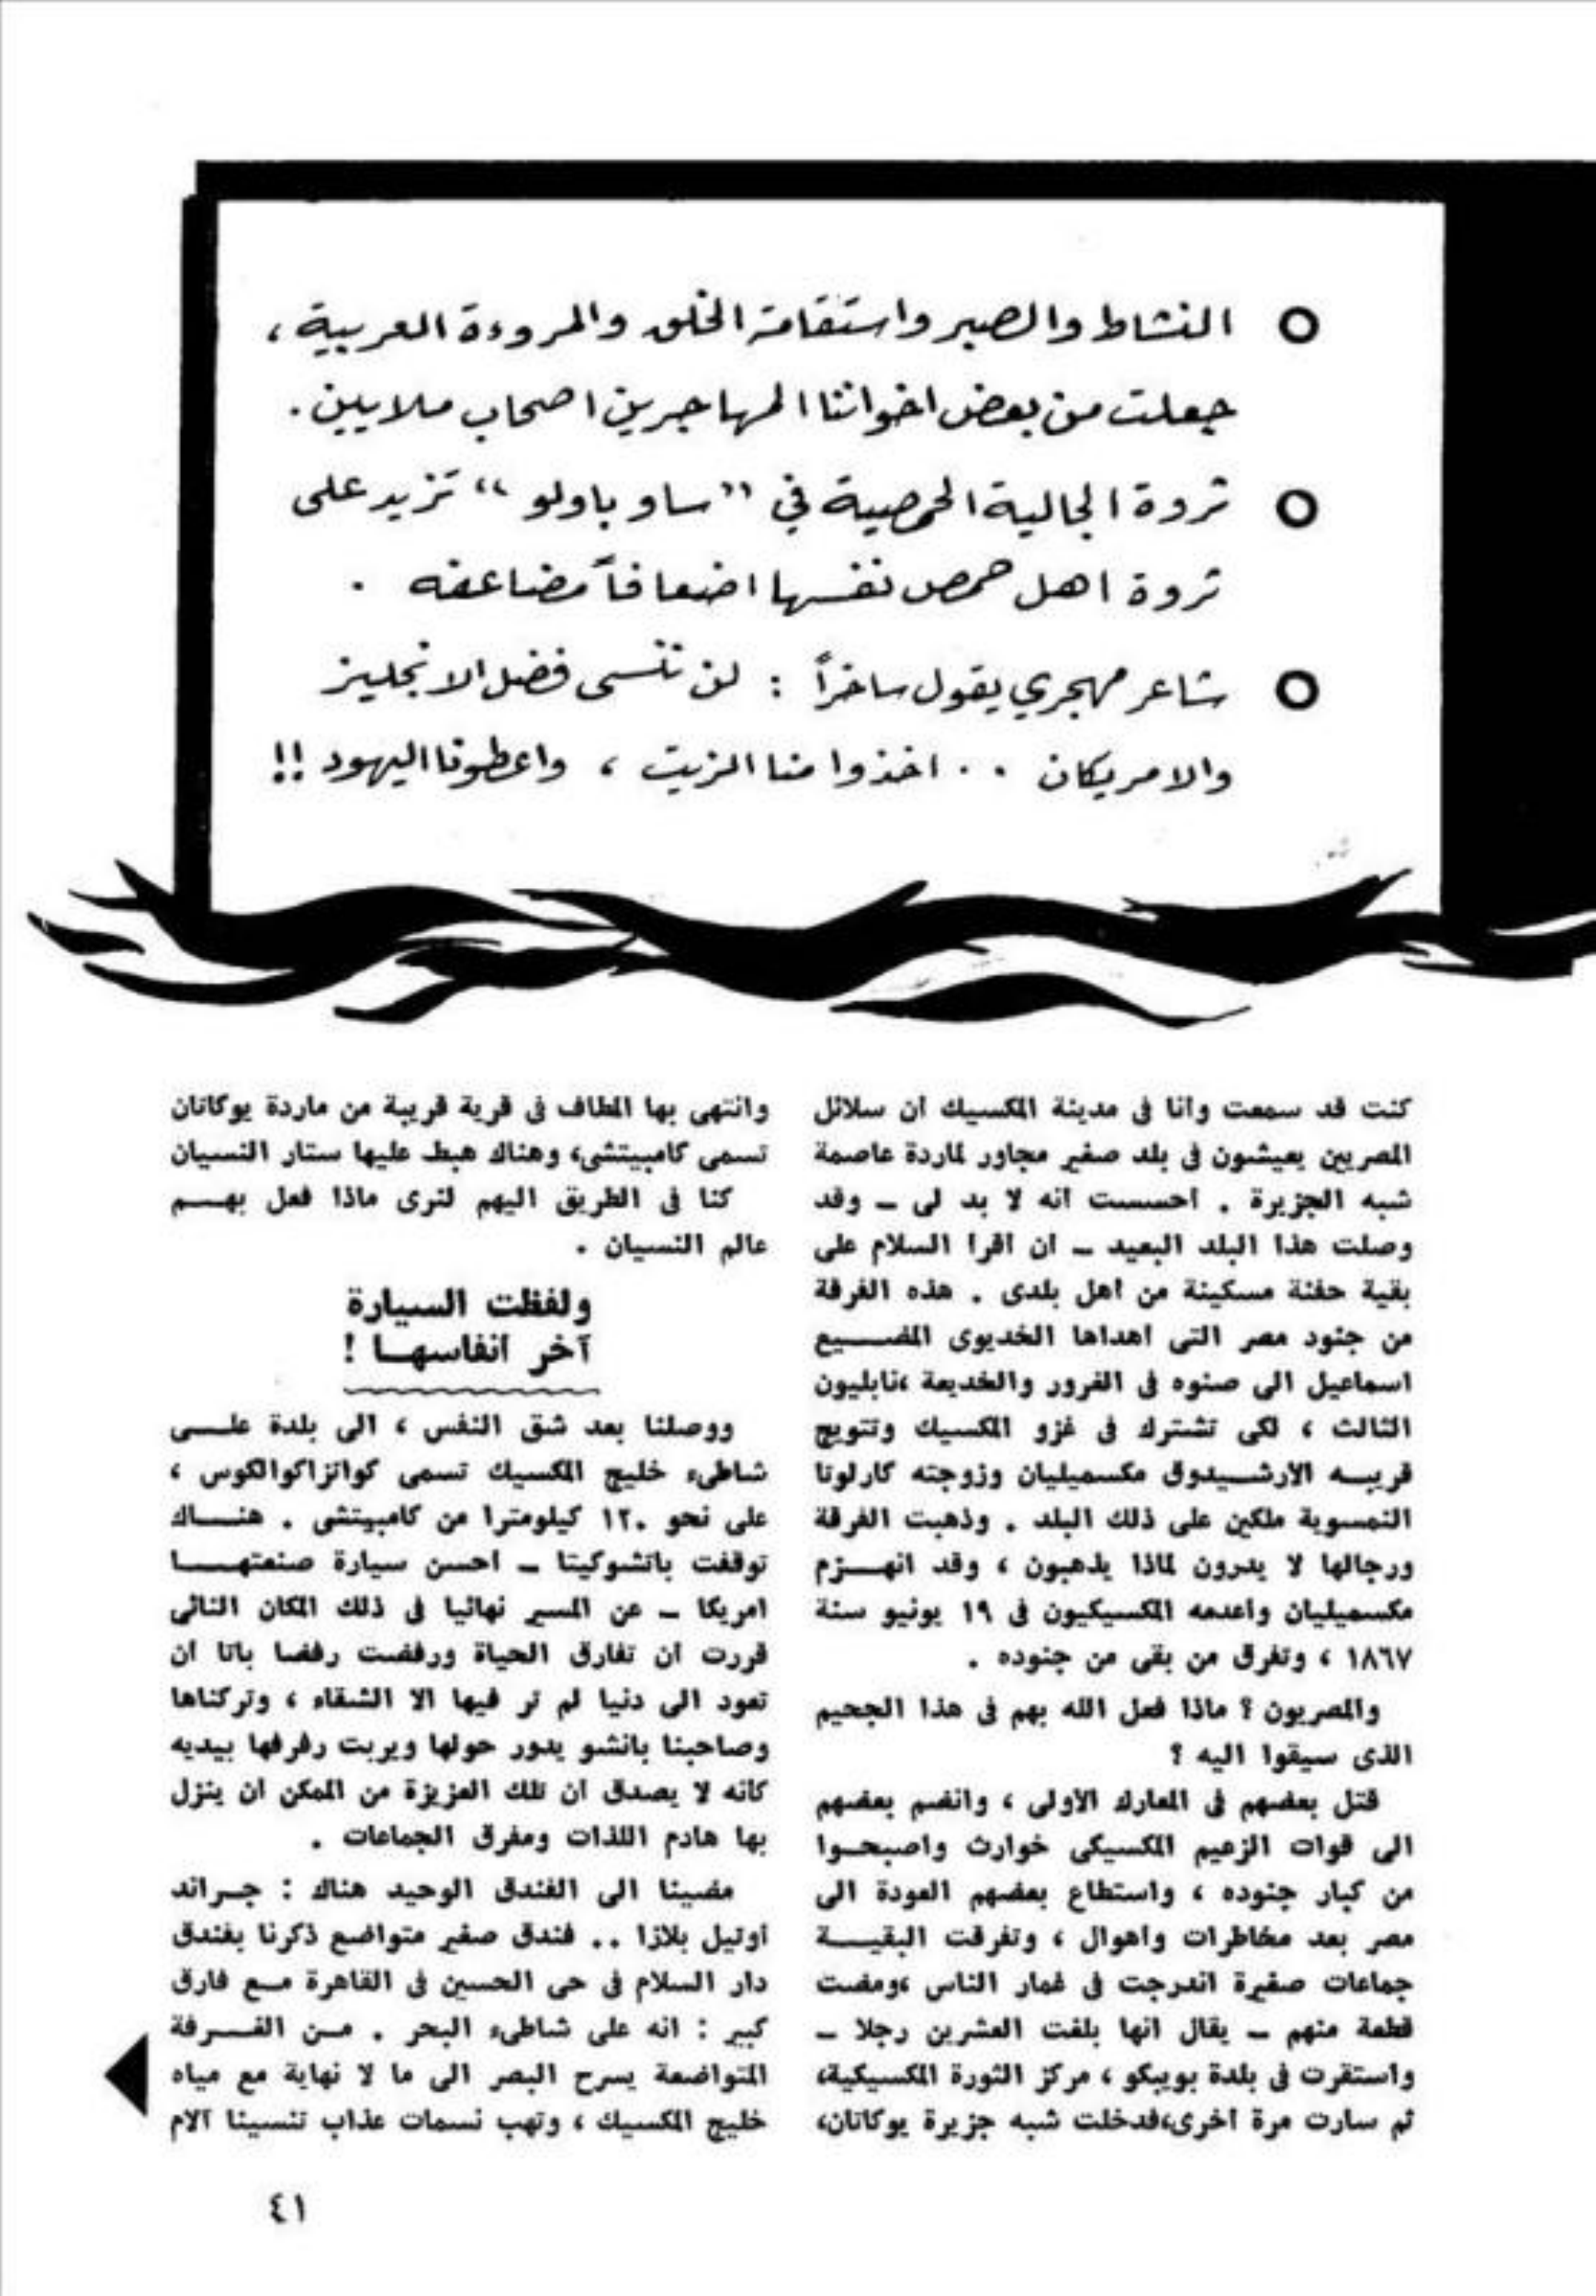 النشاط والصبر واستقامة الخلق والمروءة العربية ،
جعلت من بعض اخواننا المهاجرين اصحاب ملايين .
ثروة الجالية الحمصية في "ساو باولو" تزيد على
ثروة اهل حمص نفسها اضعافاً مضاعفه .
شاعر مهجري يقول ساخراً : لن ننسى فضل الانجليز
والامريكان .. اخذوا منا الزيت ، واعطونا اليهود !!
كنت قد سمعت وأنا فى مدينة المكسيك ان سلائل
المصريين يعيشون فى بلد صغير مجاور لماردة عاصمة
شبه الجزيرة . احسست انه لا بد لى ــ وقد
وصلت هذا البلد البعيد ــ ان اقرا السلام على
بقية حفنة مسكينة من اهل بلدى . هذه الفرقة
من جنود مصر التى اهداها الخديوى المضـــيع
اسماعيل الى صنوه فى الغرور والخديعة ،نابليون
الثالث ، لكى تشترك فى غزو المكسيك وتتويج
قريبــه الارشــيدوق مكسميليان وزوجته كارلوتا
النمسوية ملكين على ذلك البلد . وذهبت الفرقة
ورجالها لا يدرون لماذا يذهبون ، وقد انهــزم
مكسميليان واعدمه المكسيكيون فى ١٩ يونيو سنة
١٨٦٧ ، وتفرق من بقى من جنوده .
والمصريون ؟ ماذا فعل الله بهم فى هذا الجحيم
الذى سيقوا اليه ؟
قتل بعضهم فى المعارك الاولى ، وانضم بعضهم
الى قوات الزعيم المكسيكى خوارث واصبحــوا
من كبار جنوده ، واستطاع بعضهم العودة الى
مصر بعد مخاطرات واهوال ، وتفرقت البقيـــة
جماعات صغيرة اندرجت فى غمار الناس ،ومضت
قطعة منهم ــ يقال انها بلغت العشرين رجلا ــ
واستقرت فى بلدة بويبكو ، مركز الثورة المكسيكية،
ثم سارت مرة اخرى،فدخلت شبه جزيرة يوكاتان،
وانتهى بها المطاف فى قرية قريبة من ماردة يوكاتان
تسمى كامبيتشى، وهناك هبط عليها ستار النسيان
كنا فى الطريق اليهم لنرى ماذا فعل بهــم
عالم النسيان .
ولفظت السيارة
آخر انفاسهــا !
ووصلنا بعد شق النفس ، الى بلدة علــى
شاطىء خليج المكسيك تسمى كواتزاكوالكوس ،
على نحو ١٢٠ كيلومترا من كامبيتشى . هنــاك
توقفت باتشوكيتا ــ احسن سيارة صنعتهــــا
امريكا ــ عن المسير نهائيا فى ذلك المكان النائى
قررت ان تفارق الحياة ورفضت رفضا باتا ان
تعود الى دنيا لم تر فيها الا الشقاء ، وتركناها
وصاحبنا بانشو يدور حولها ويربت رفرفها بيديه
كانه لا يصدق ان تلك العزيزة من الممكن ان ينزل
بها هادم اللذات ومفرق الجماعات .
مضينا الى الفندق الوحيد هناك : جــراند
اوتيل بلازا .. فندق صغير متواضع ذكرنا بفندق
دار السلام فى حى الحسين فى القاهرة مــع فارق
كبير : انه على شاطىء البحر . مــن الغــرفة
المتواضعة يسرح البصر الى ما لا نهاية مع مياه
خليج المكسيك ، وتهب نسمات عذاب تنسينا آلام
٤١